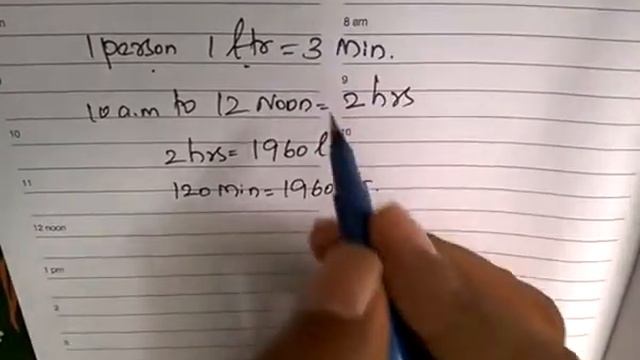 8 am
1 person 1 ltr = 3 Min.
9
10 a.m to 12 Noon = 2 hrs
10
2 hrs = 1960
11
120 min = 1960
12 noon
1 pm
2